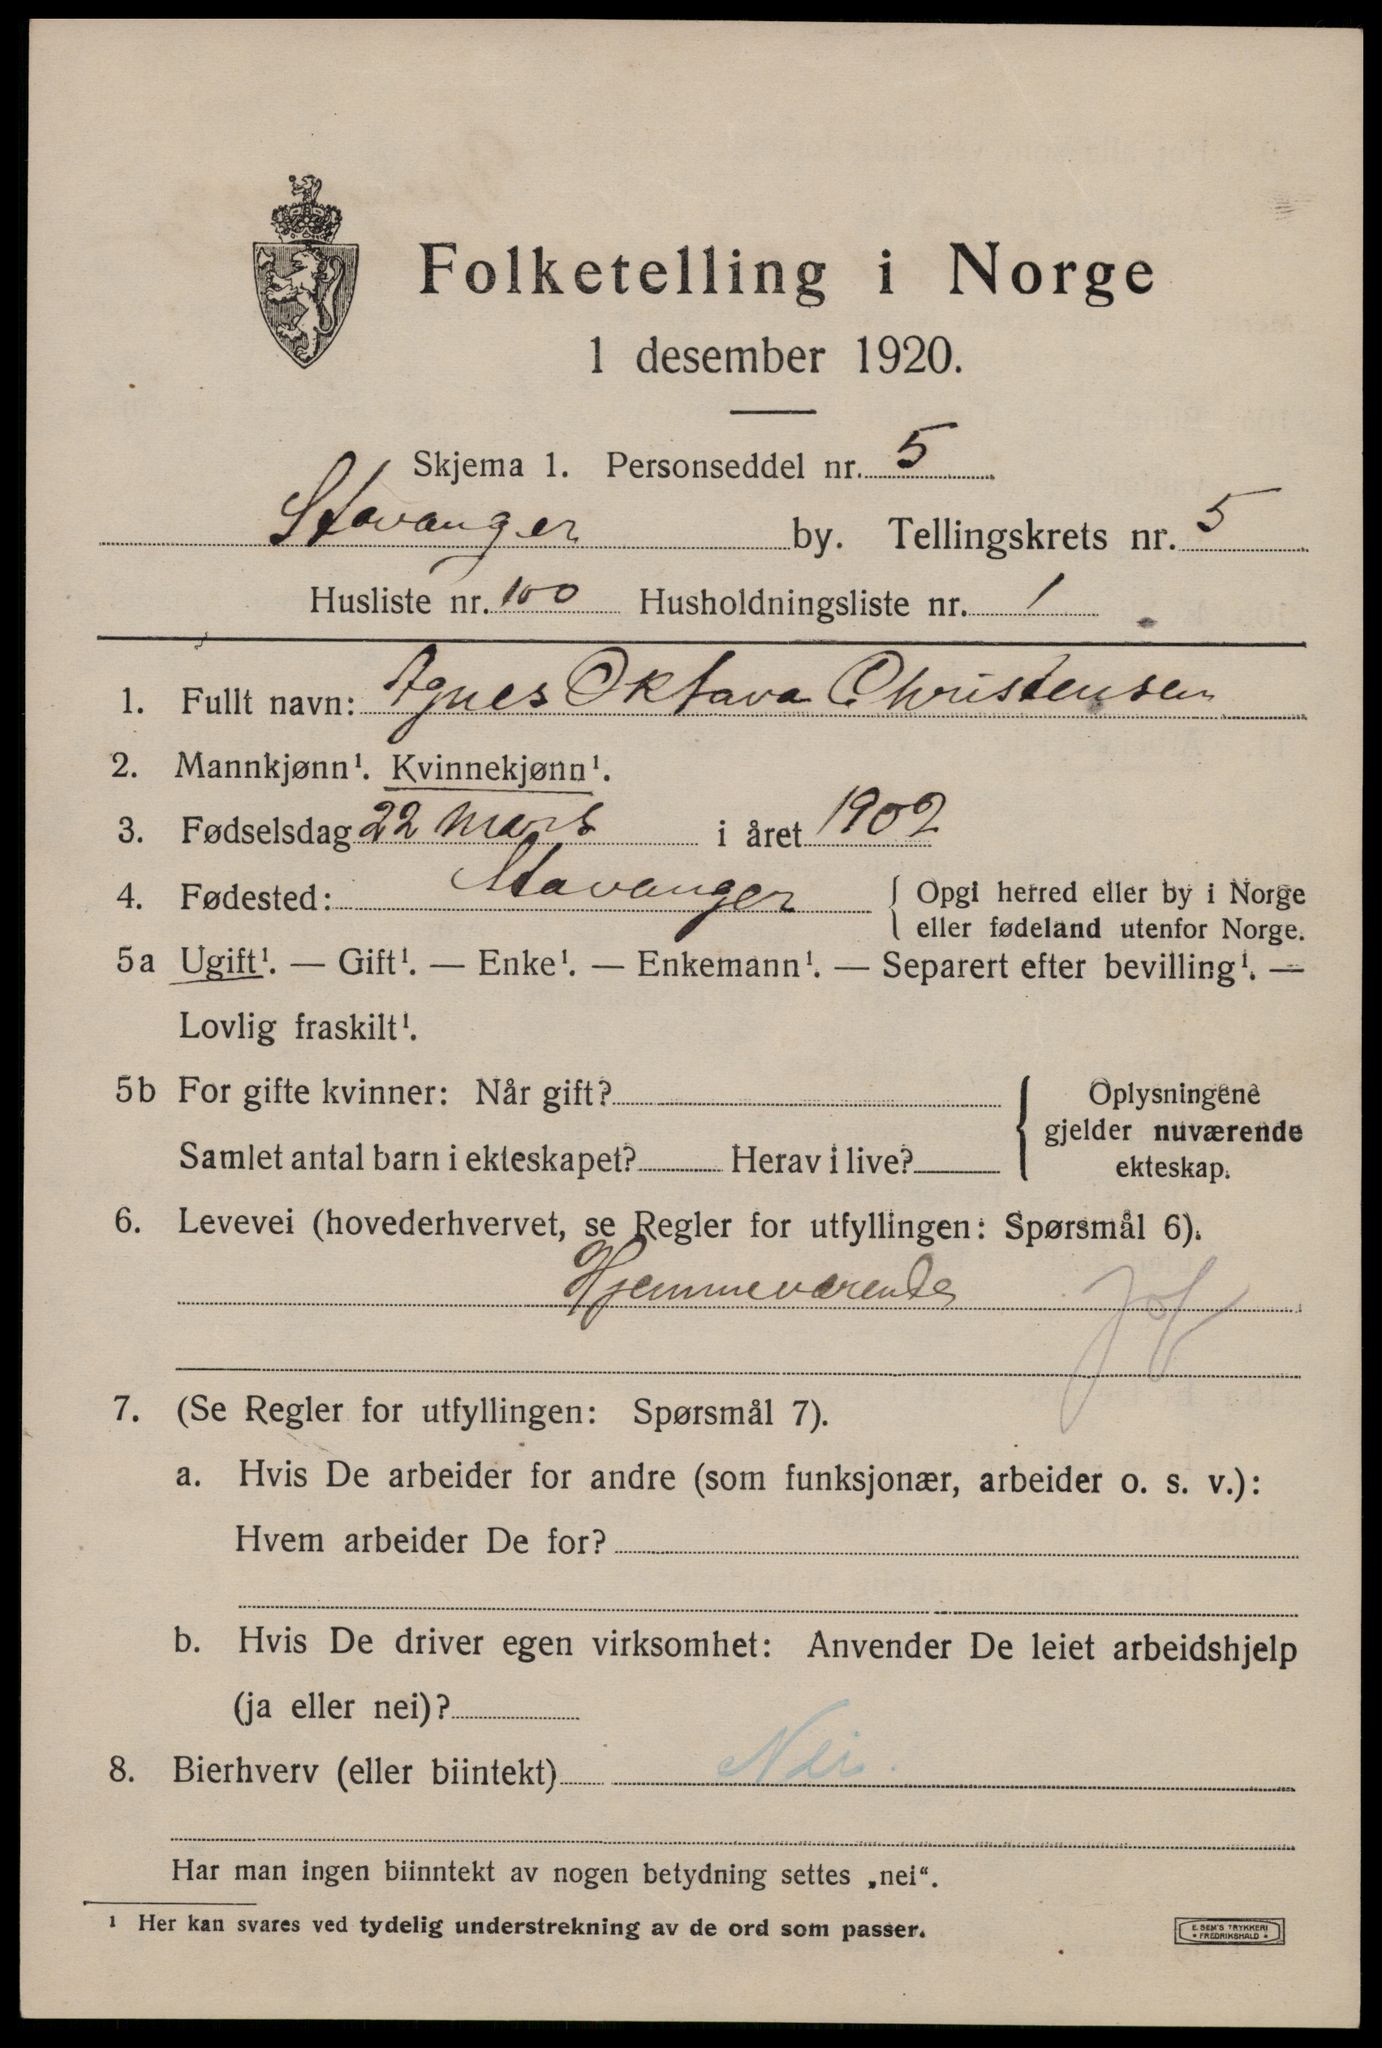 Folketelling i Norge
1 desember 1920.
Skjema 1. Personseddel nr. 5
Stavanger by. Tellingskrets nr. 5
Husliste nr. 100 Husholdningsliste nr. 1
1. Fullt navn: Agnes Oktava Christensen
2. Mannkjønn¹. Kvinnekjønn¹.
3. Fødselsdag 22 mars i året 1902
4. Fødested: Stavanger { Opgi herred eller by i Norge
eller fødeland utenfor Norge.
5a Ugift¹. — Gift¹. — Enke¹. — Enkemann¹. — Separert efter bevilling¹. —
Lovlig fraskilt¹.
5b For gifte kvinner: Når gift?
Samlet antal barn i ekteskapet? Herav i live?
{ Oplysningene
gjelder nuværende
ekteskap.
6. Levevei (hovederhvervet, se Regler for utfyllingen: Spørsmål 6).
Hjemmeværende
7. (Se Regler for utfyllingen: Spørsmål 7).
a. Hvis De arbeider for andre (som funksjonær, arbeider o. s. v.):
Hvem arbeider De for?
b. Hvis De driver egen virksomhet: Anvender De leiet arbeidshjelp
(ja eller nei)?
8. Bierhverv (eller biintekt) Nei.
Har man ingen biinntekt av nogen betydning settes „nei“.
¹ Her kan svares ved tydelig understrekning av de ord som passer.
E. SEM'S TRYKKERI
• FREDRIKSHALD •